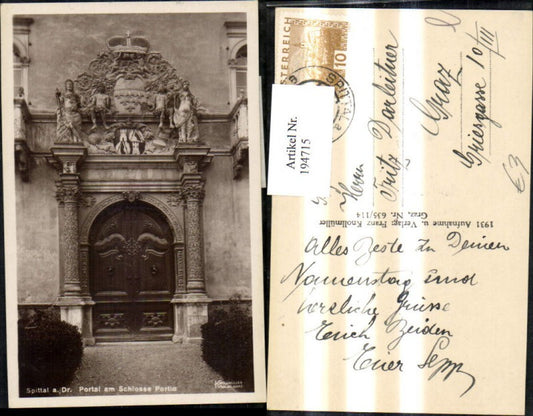 Spittal a. Dr. Portal am Schlosse Portia
ÖSTERREICH
10
Artikel Nr.
194715
Herrn
Fritz Darleitner
Graz
Griesgasse 10/III
€3
1931 Aufnahme u. Verlag: Franz Knollmüller
Graz, Nr. 635/114
Alles Beste zu Deinen
Namenstag und
herzliche Grüsse
Euch Beiden
Euer Sepp